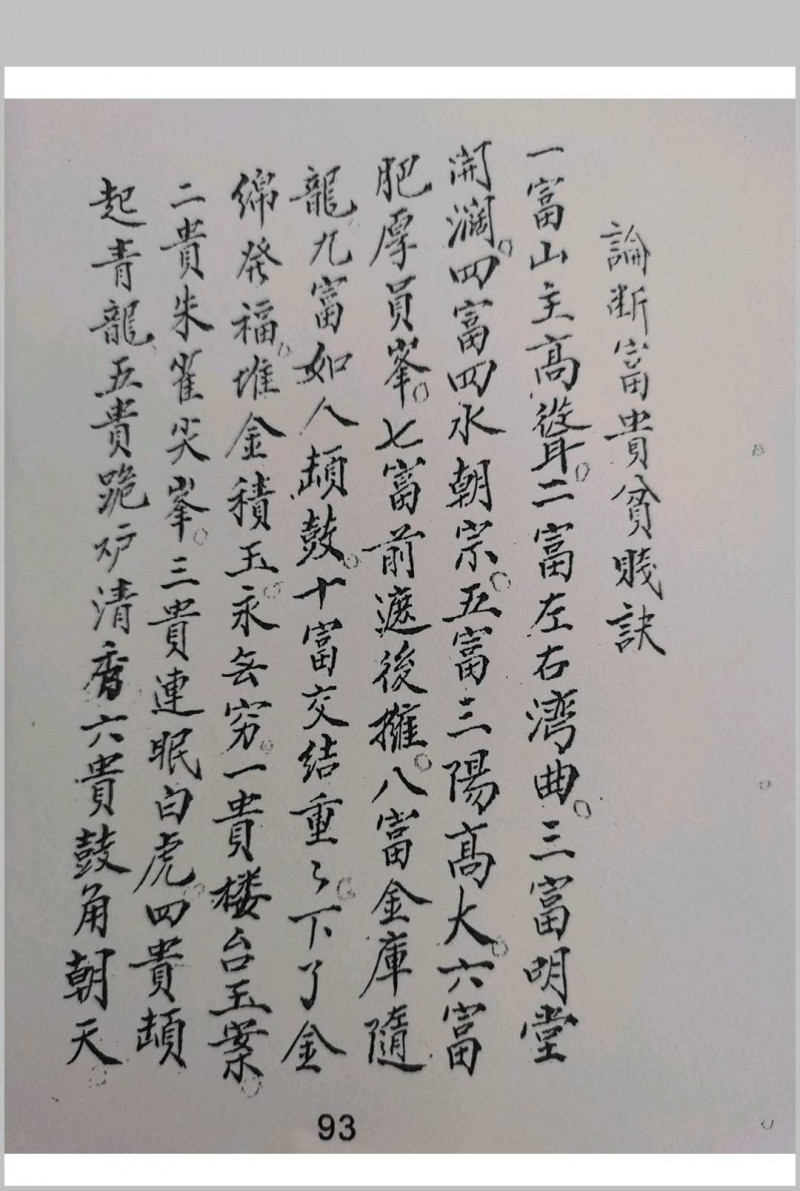 論断富貴貧賎訣
一富山主髙聳。二富左右湾曲。三富明堂
開濶。四富四水朝宗。五富三陽髙大。六富
肥厚員峯。七富前遮後擁。八富金庫隨
龍九富如人頡鼓。十富交结重〻。下了金
綿發福。堆金積玉。永無穷。一貴楼台玉案。
二貴朱雀尖峯。三貴連眠白虎。四貴頡
起青龍。五貴跪炉清香六貴鼓角朝天。
93